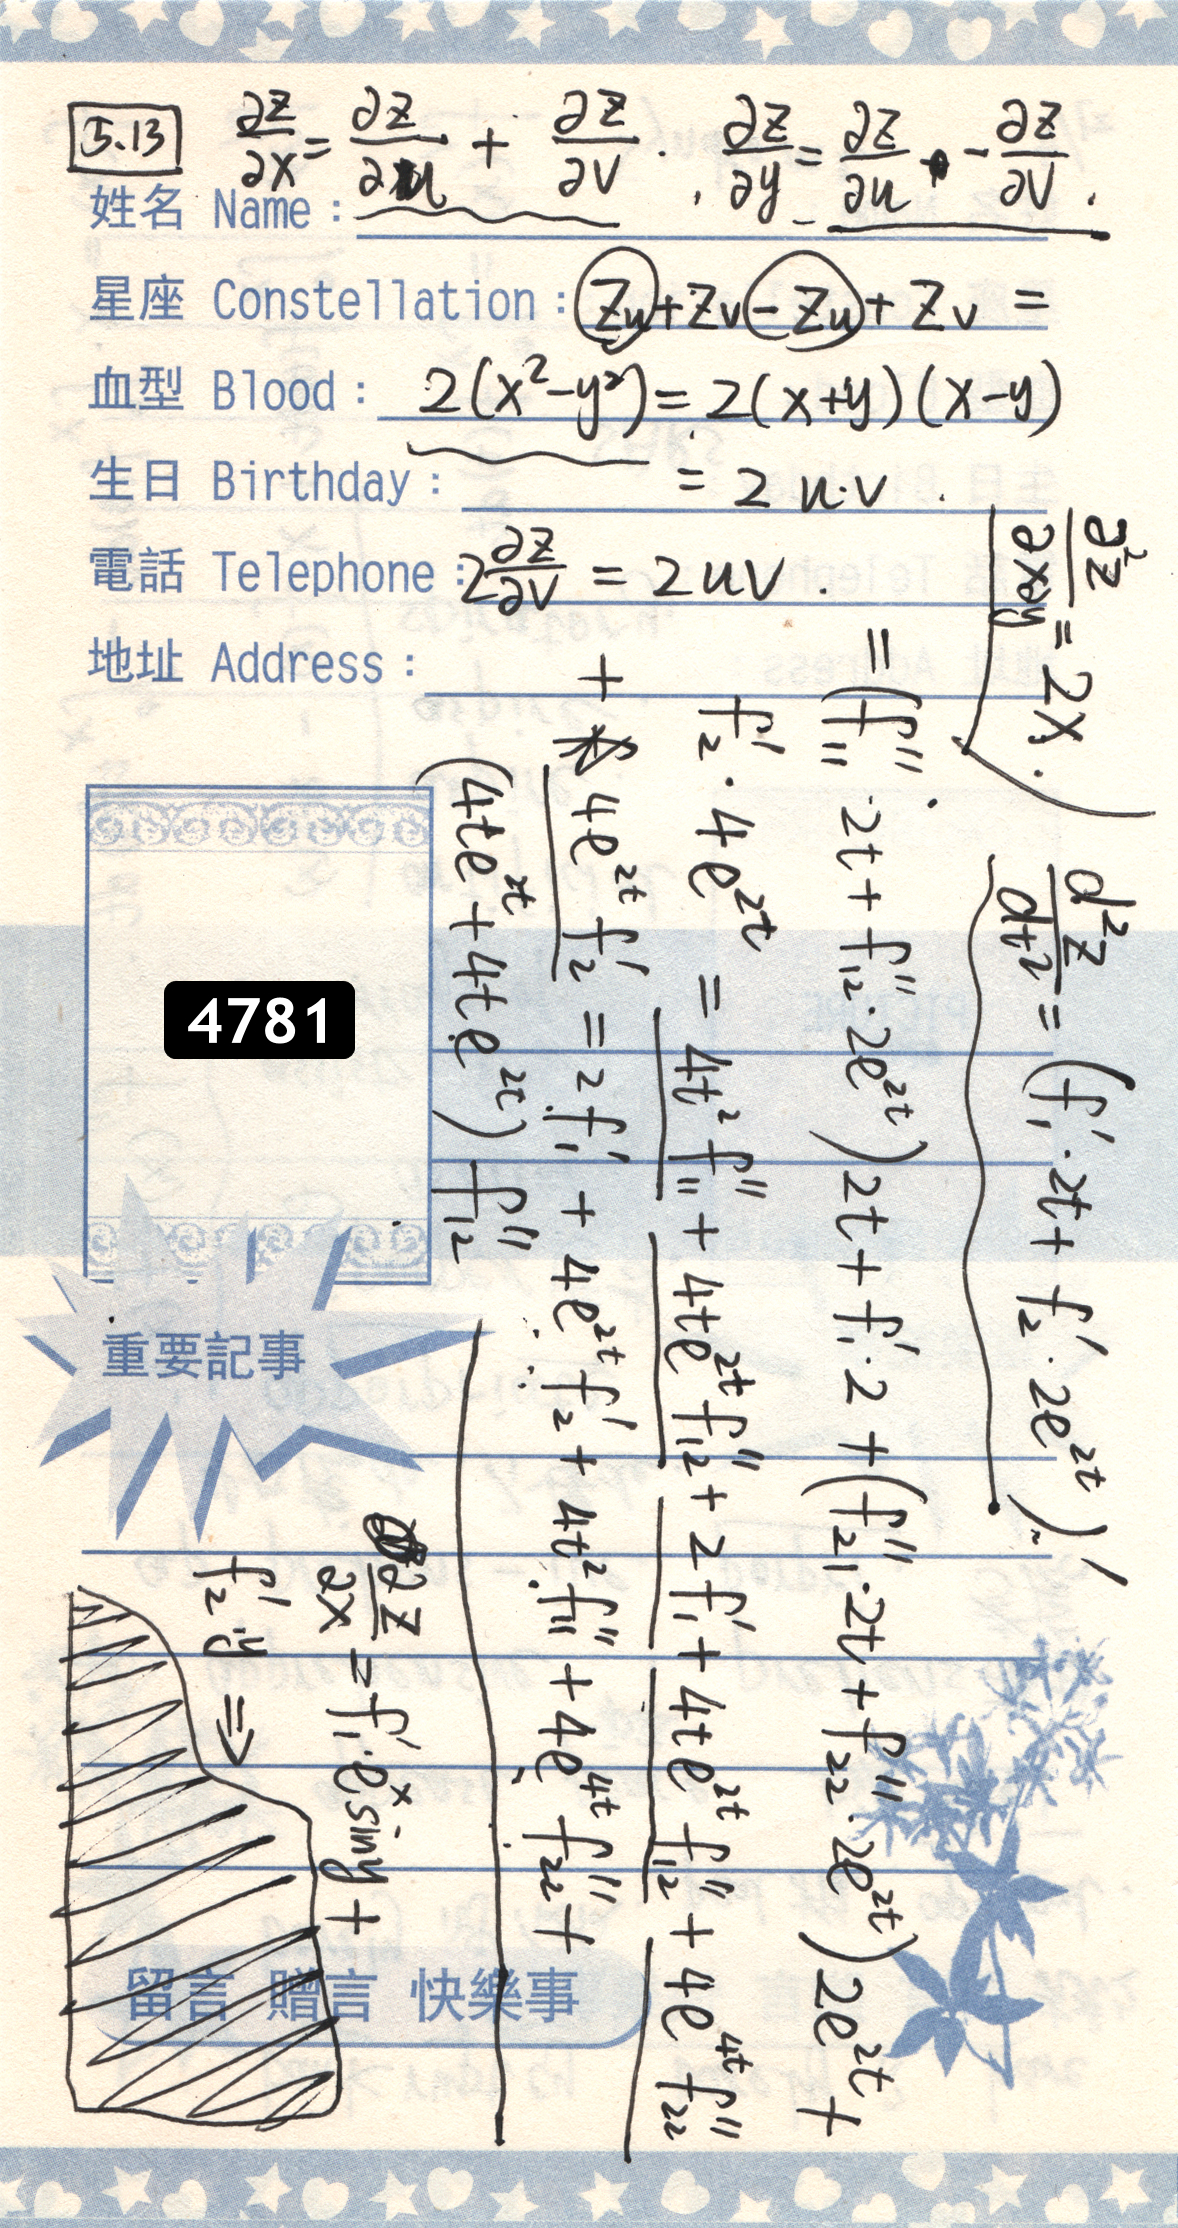 5.13 ∂z/∂x = ∂z/∂u + ∂z/∂v . , ∂z/∂y = ∂z/∂u · - ∂z/∂v .
姓名 Name :
星座 Constellation : Zu + Zv - Zu + Zv =
血型 Blood : 2(x²-y²) = 2(x+y)(x-y)
生日 Birthday : = 2 u·v .
電話 Telephone : 2 ∂z/∂v = 2uv .
地址 Address :
4781
重要記事
留言 贈言 快樂事
∂²z/∂x∂y = 2x .
d²z/dt² = (f₁′ · 2t + f₂′ · 2e²ᵗ)′
= (f₁₁″ · 2t + f₁₂″ · 2e²ᵗ) 2t + f₁′ · 2 + (f₂₁″ · 2t + f₂₂″ · 2e²ᵗ) 2e²ᵗ +
f₂′ · 4e²ᵗ = 4t² f₁₁″ + 4te²ᵗ f₁₂″ + 2f₁′ + 4te²ᵗ f₁₂″ + 4e⁴ᵗ f₂₂″
+ 4e²ᵗ f₂′ = 2f₁′ + 4e²ᵗ f₂′ + 4t² f₁₁″ + 4e⁴ᵗ f₂₂″ +
(4te²ᵗ + 4te²ᵗ) f₁₂″
∂z/∂x = f₁′ · eˣ siny +
f₂′ · y ⇒